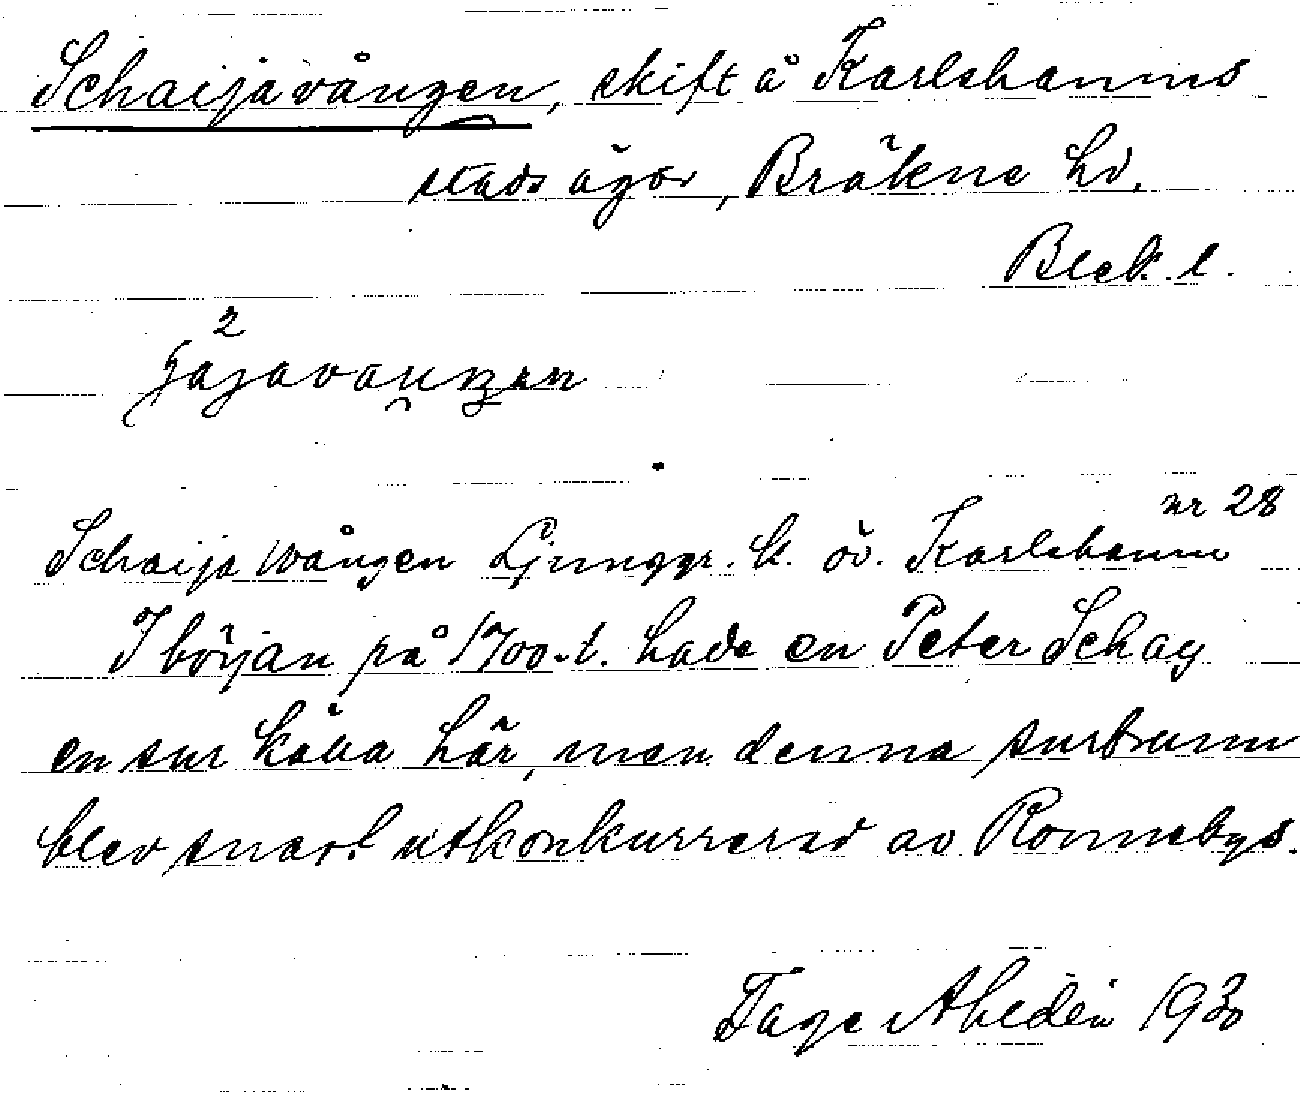 Schaijavången, skift å Karlshamns
stads ägor, Bräkne hd.
Blek. l.
2
Schaija wången Ljunggr. k. öv. Karlshamn nr 28
I början på 1700-t. hade en Peter Schay
en sur källa här, men denna surbrunn
blev snart utkonkurrerad av Ronnebys.
Tage Ahldén 1930